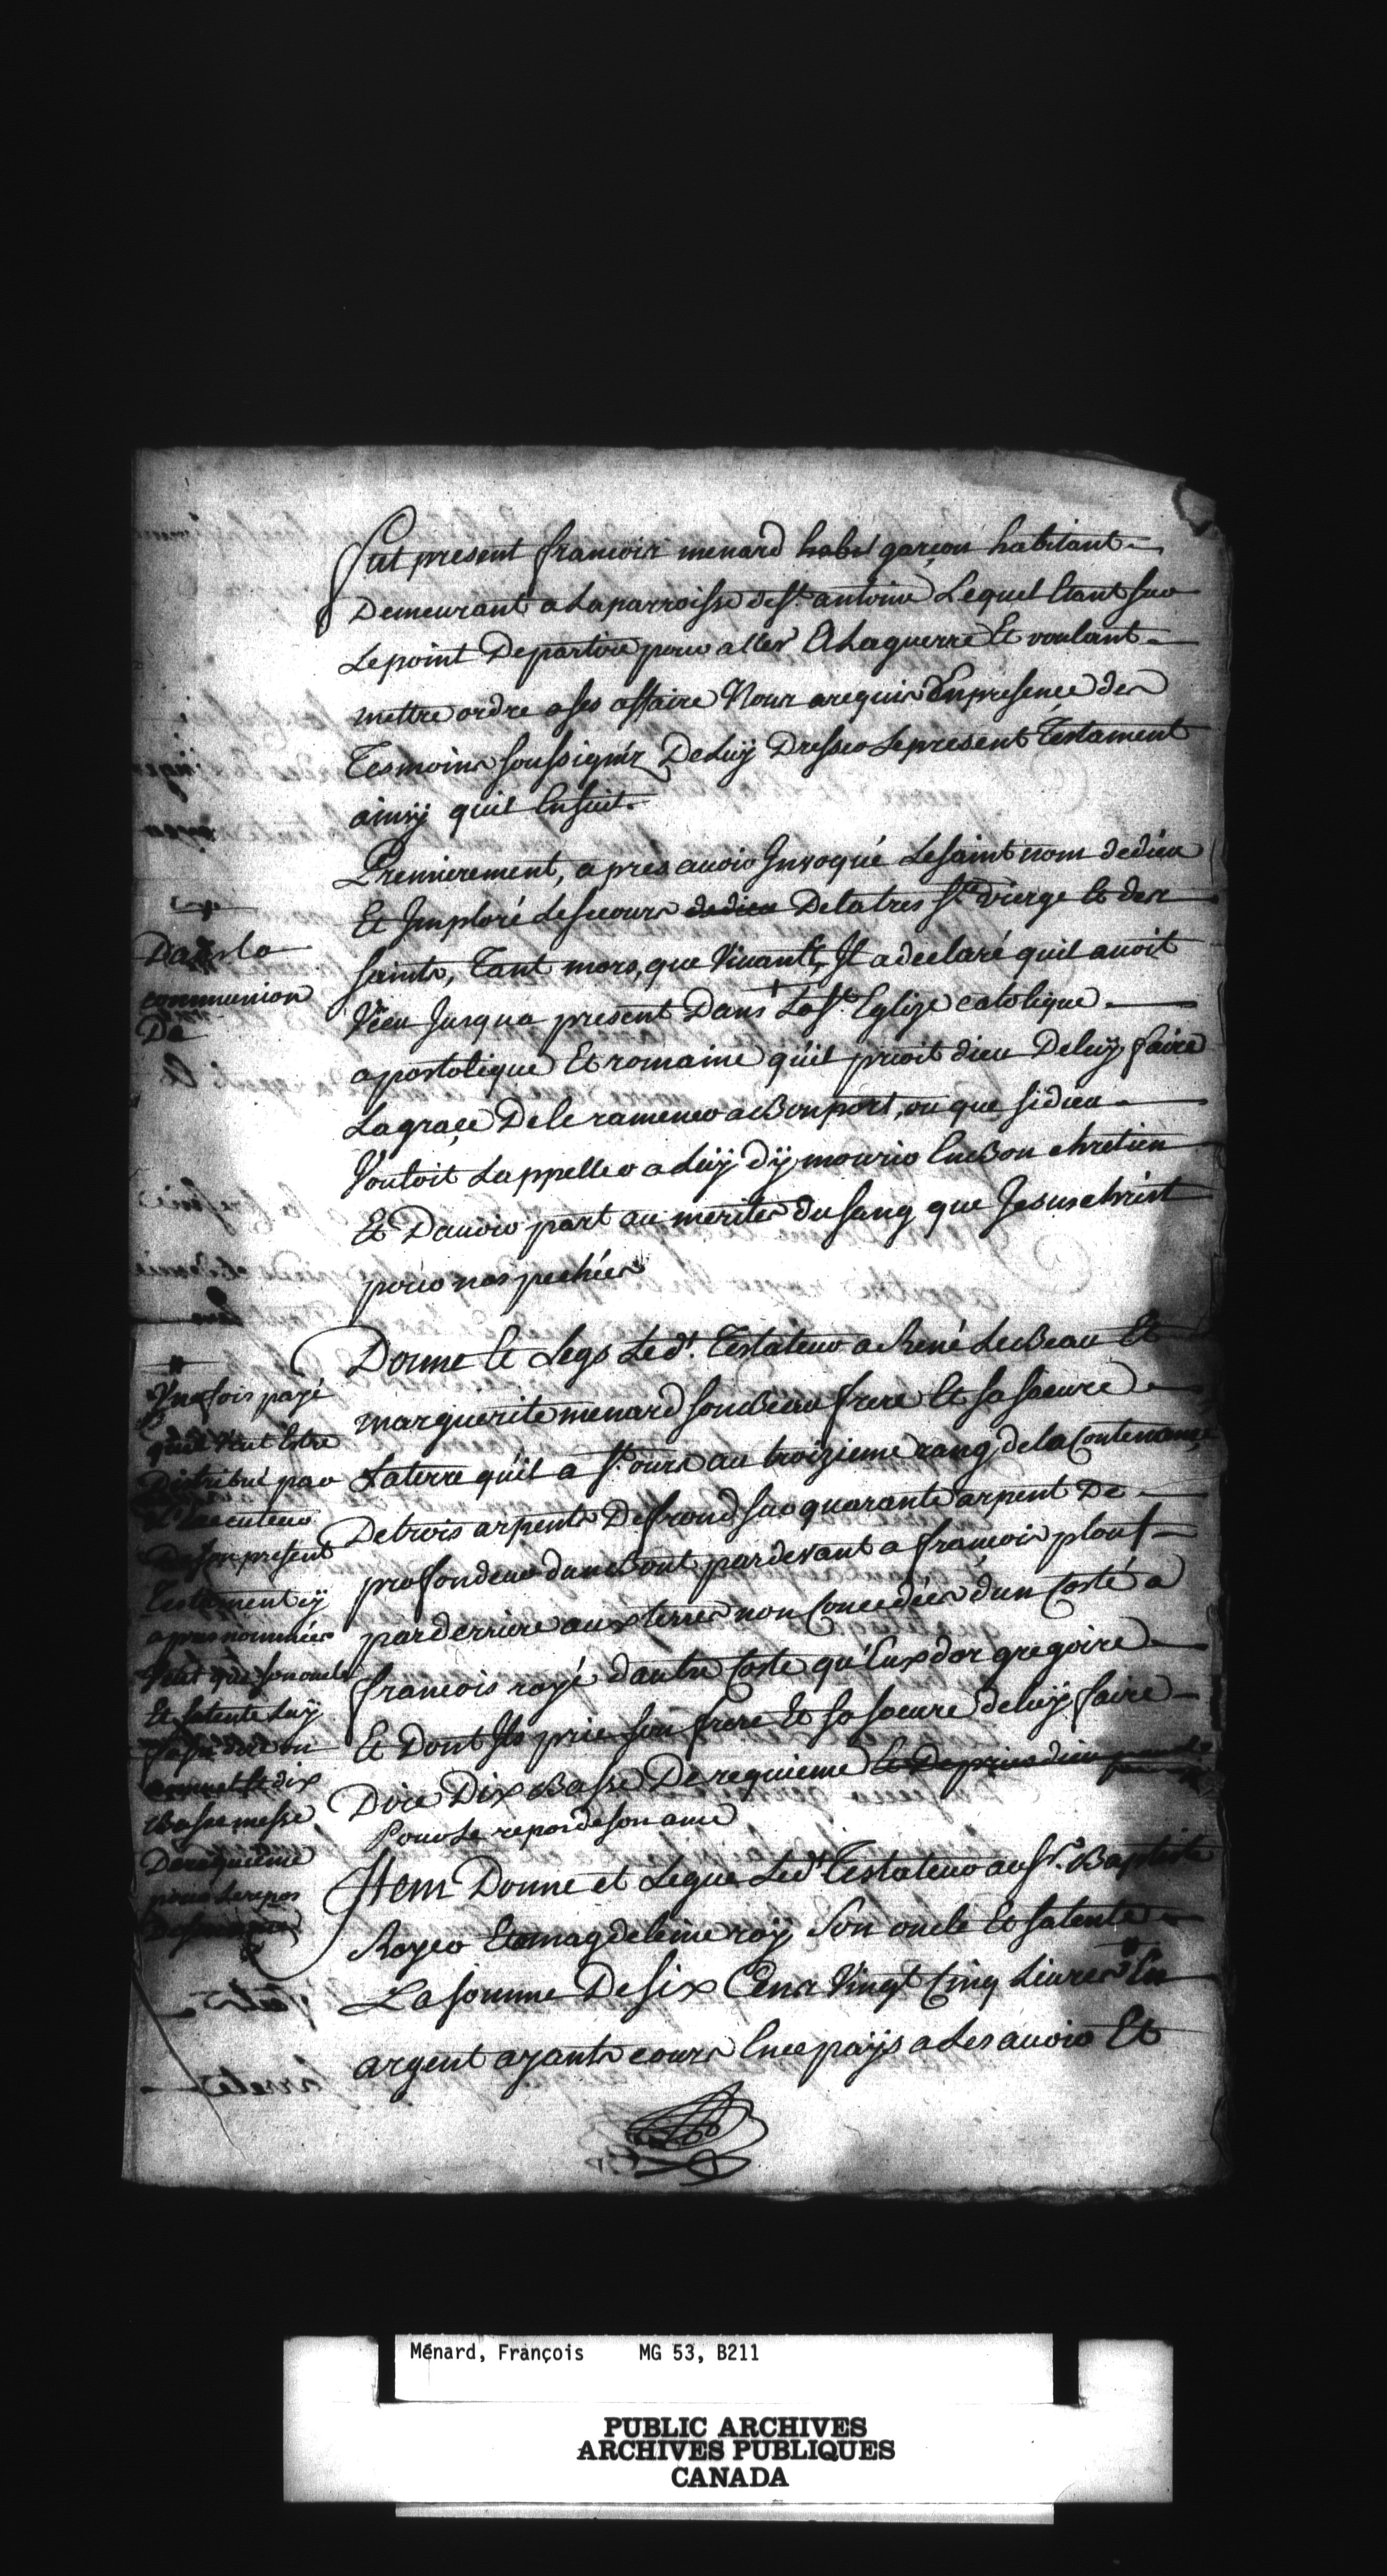 Fut present francois menard habit garçon habitant
Demeurant a La parroisse de St. antoine Lequel Etant sur
Le point De partire pour aller A La guerre Et voulant
mettre ordre a ses affaire Nous a requis En presence des
Tesmoins soussignés De Luÿ Dresser Le present Testament
ainsÿ quil Ensuit.
Premierement, apres auoir Invoqué Le saint nom de dieu
Et Imploré Le secours de dieu De la tres Ste. vierge Et des
saints, Tant mors, que Vivants, Il a declaré quil auoit
Vecu Jusqua present Dans + La Ste. Eglize catolique
apostolique Et romaine quil prioit dieu De luÿ faire
La graçe De le ramener a Bon port, ou que si dieu
Vouloit Lappeller a Luÿ dÿ mourir En Bon chretien
Et Dauoir part au merites du sang que Jesus christ
pour nos pechées
Donne Et Legs Led. Testateur a René Le Beau Et
marguerite menard son Beau frere Et sa soeure
La terre quil a St. ours au troizieme rang de la Contenance
De trois arpents De frond sur quarante arpent De
profondeur dun Bout par devant a francois plouf
par derriere aux terres non Concedées dun Costé a
francois rayé dautre Coste qu'Eux dor gregoire
Et Dont Ils prie son frere Et sa soeure de luÿ faire
Dire Dix Basse De requieme Et De prier dieu pour
Pour Le repos de son ame
Item Donne et Legue Led. Testateur au Sr. Baptiste
Royer Et magdeleine roÿ Son oncle Et sa tente
La somme De six Cens Vingt Cinq Livres # En
argent ayants cours En ce païs a Les auoir Et
Dans la
communion
De
#
Une fois payé
quil Veut Estre
Distribué par
L'Executeur
De son present
Testament cÿ
apres nommées
Veut que son oncle
Et sa tente Luÿ
fasse dire un
et dix
Basse messe
De requieme
pour Le repos
Ménard, François MG 53, B211
PUBLIC ARCHIVES
ARCHIVES PUBLIQUES
CANADA